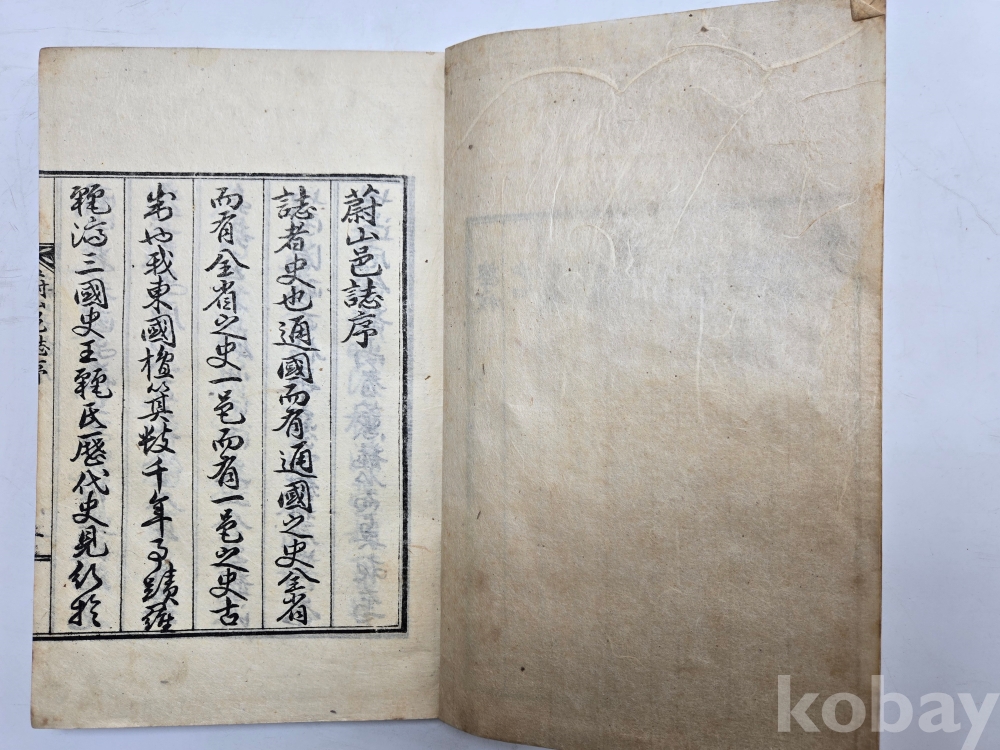 蔚山邑誌序
誌者史也通國而有通國之史全省
而有全省之史一邑而有一邑之史古
也我東國檀箕數千年事蹟羅
麗濟三國史王麗氏歷代史見行於
蔚山邑誌序
kobay